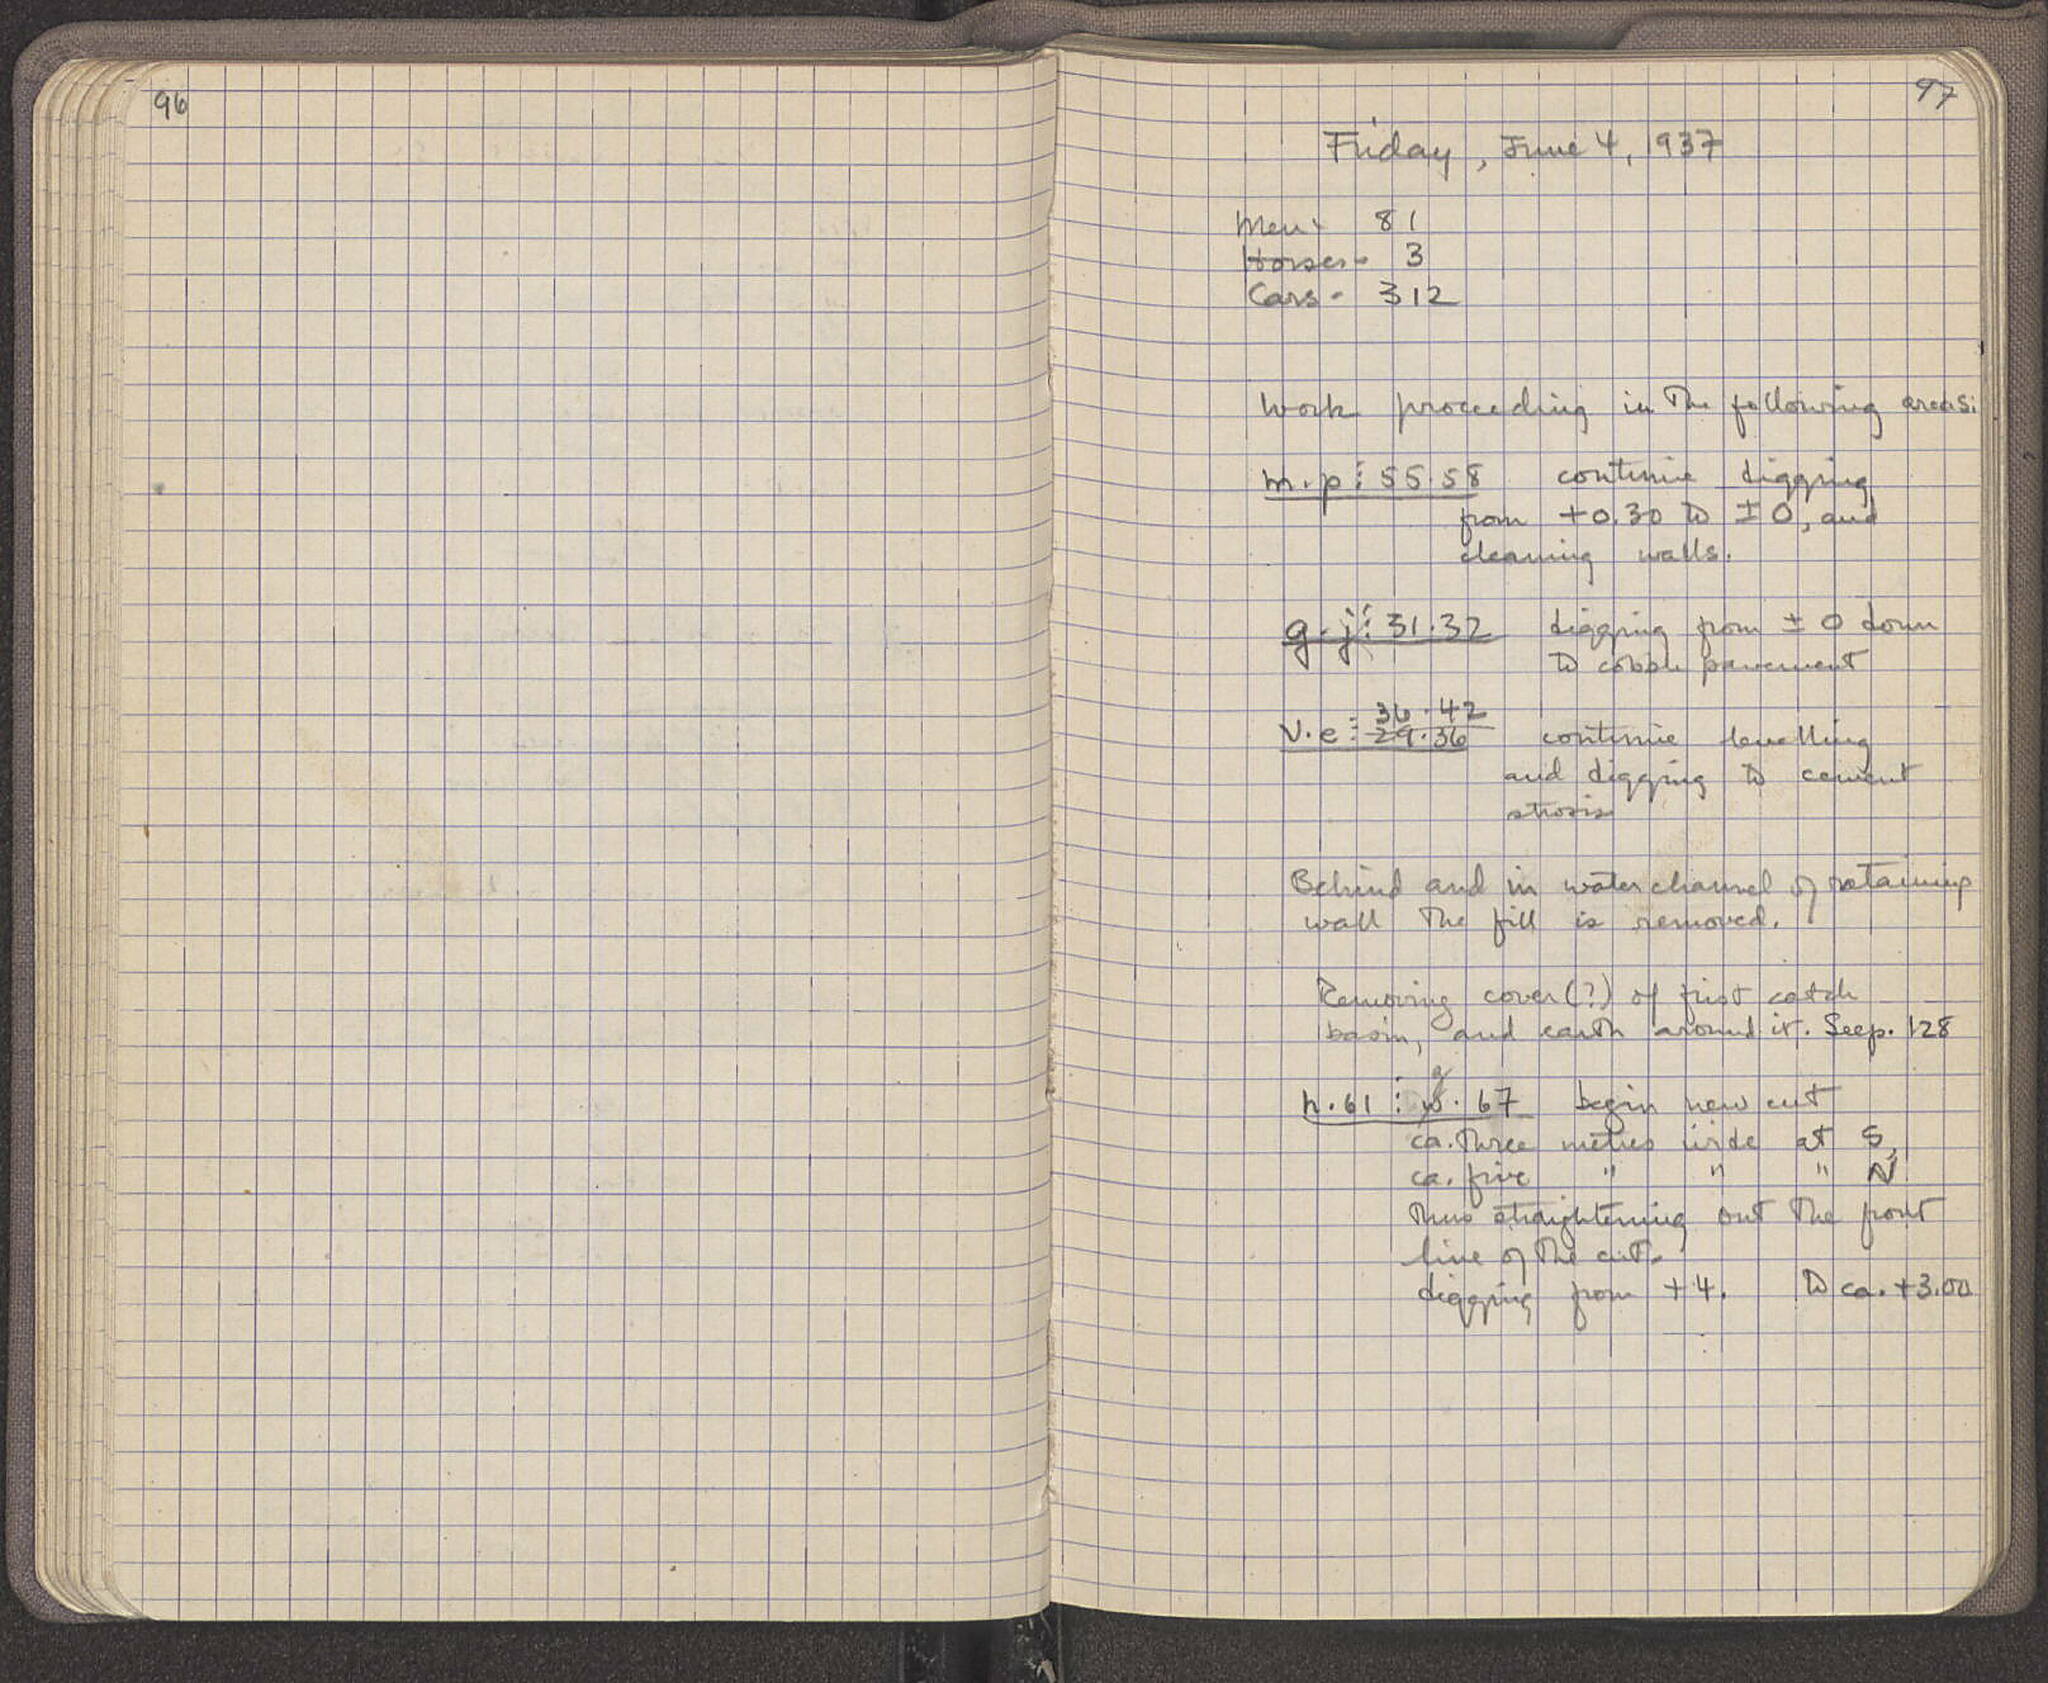 96
97
Friday, June 4, 1937
Men - 81
Horses - 3
Cars - 312
Work proceeding in the following areas:
m-p : 55-58 continue digging
from +0.30 to ±0, and
cleaning walls.
g-j : 31-32 digging from ±0 down
to cobble pavement
36-42
V-e : 29-36 continue levelling
and digging to cement
strosis
Behind and in water channel of retaining
wall the fill is removed.
Removing cover(?) of first catch
basin, and earth around it. See p. 128
h.61 : 67 begin new cut
ca. three metres wide at S,
ca. five " " " N
thus straightening out the front
line of the cut.
digging from +4. to ca. +3.00